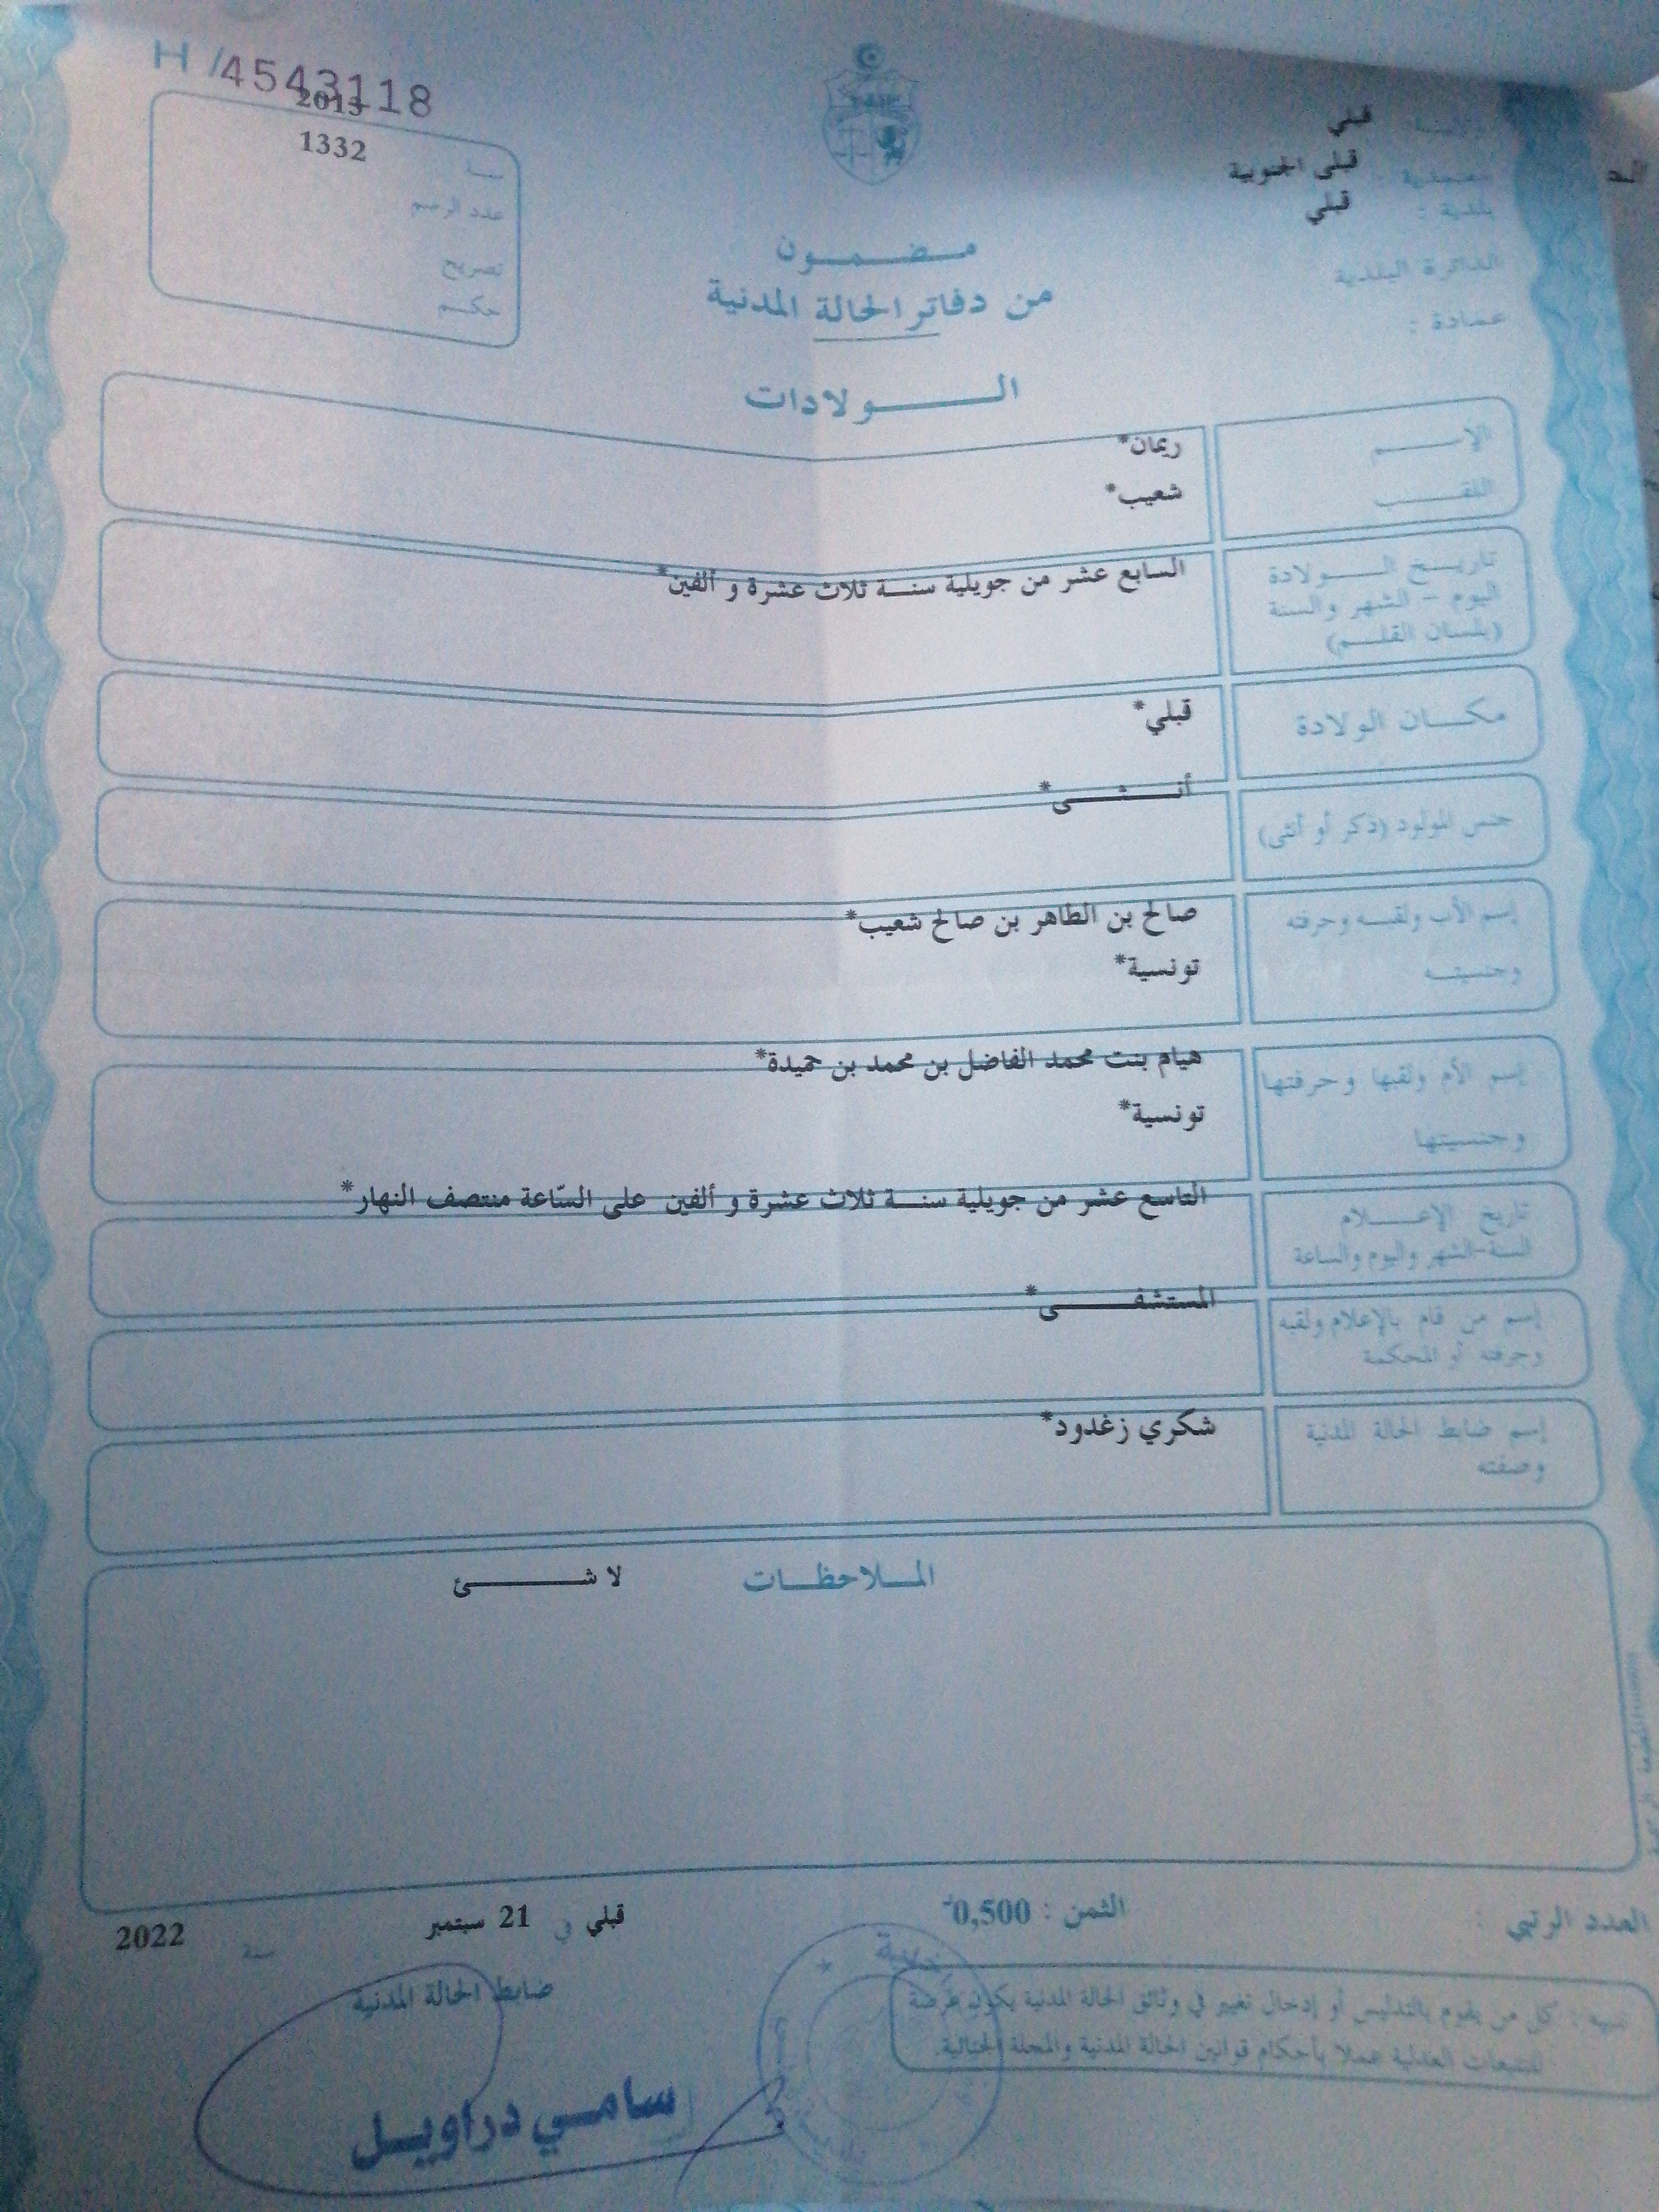 H /4543118
2013
1332
سنة
عدد الرسم
تصريح
حكم
ولاية قبلي
معتمدية قبلي الجنوبية
بلدية : قبلي
الدائرة البلدية
عمادة :
مضمون
من دفاتر الحالة المدنية
الولادات
الإسم ريمان*
اللقب شعيب*
تاريخ الولادة
اليوم - الشهر والسنة
(بلسان القلم)
السابع عشر من جويلية سنة ثلاث عشرة و ألفين*
مكان الولادة قبلي*
جنس المولود (ذكر أو أنثى) أنثى*
إسم الأب ولقبه وحرفته صالح بن الطاهر بن صالح شعيب*
وجنسيته تونسية*
إسم الأم ولقبها وحرفتها هيام بنت محمد الفاضل بن محمد بن حميدة*
وجنسيتها تونسية*
تاريخ الإعلام
السنة-الشهر واليوم والساعة
التاسع عشر من جويلية سنة ثلاث عشرة و ألفين على السّاعة منتصف النهار*
إسم من قام بالإعلام ولقبه
وحرفته أو المحكمة
المستشفى*
إسم ضابط الحالة المدنية
وصفته
شكري زغدود*
الملاحظات لا شئ
العدد الرتبي :
الثمن : 0,500
قبلي في 21 سبتمبر سنة 2022
ضابط الحالة المدنية
تنبيه : كل من يقوم بالتدليس أو إدخال تغيير في وثائق الحالة المدنية يكون عرضة
للتتبعات العدلية عملا بأحكام قوانين الحالة المدنية والمجلة الجنائية.
سامي دراويل